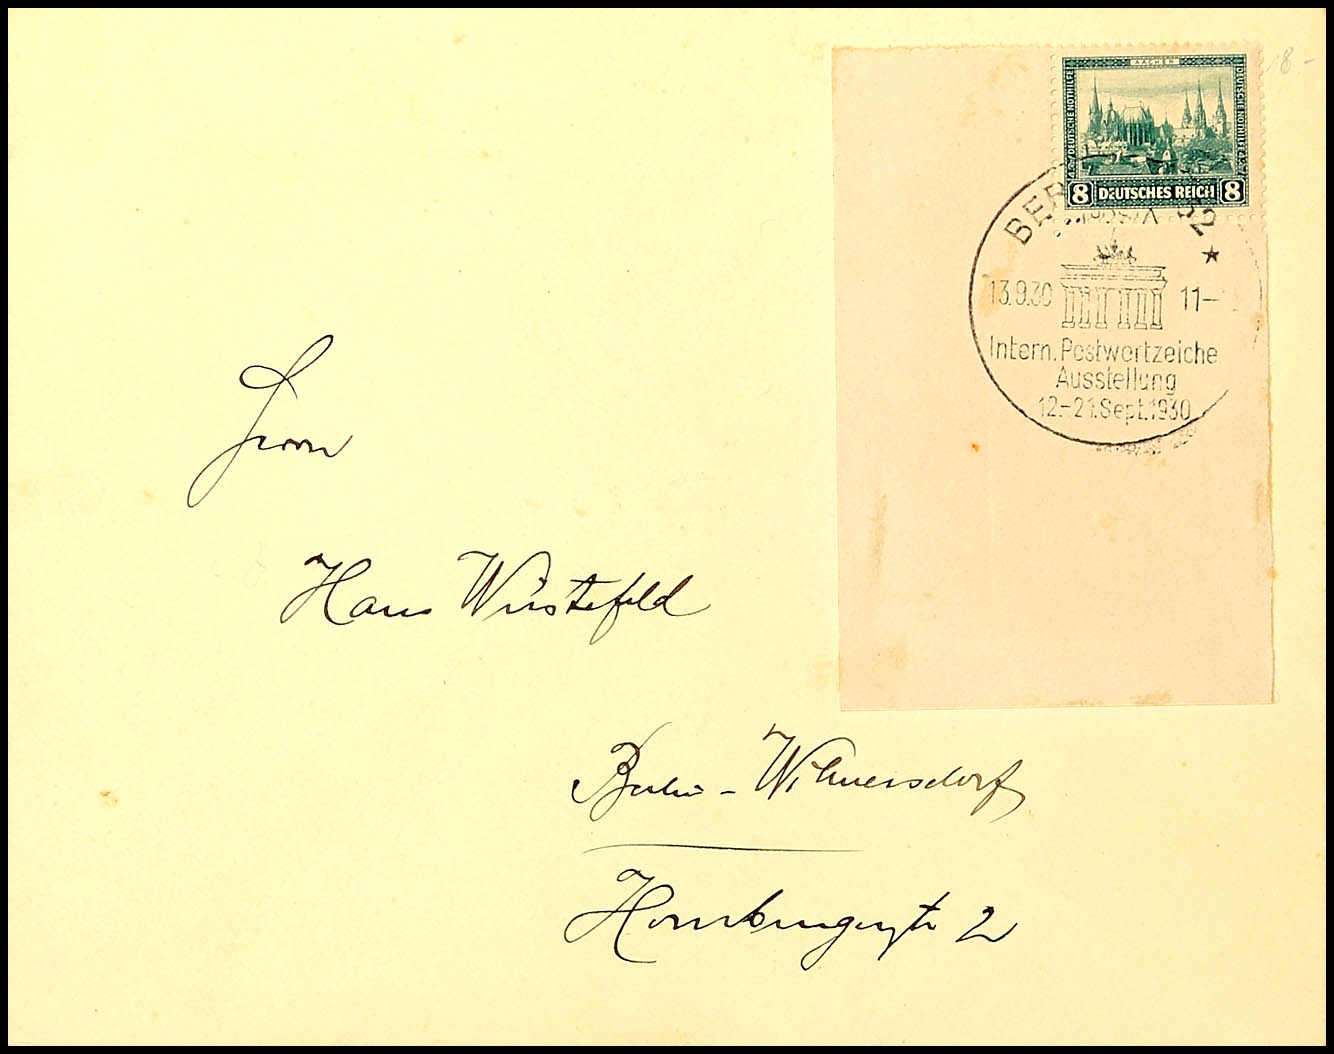 8.-
AACHEN
DEUTSCHE NOTHILFE
DEUTSCHE NOTHILFE
8 DEUTSCHES REICH 8
BER 2
13.9.30 11-
Intern. Postwertzeiche
Ausstellung
12.-21.Sept.1930
Herrn
Hans Wüstefeld
Berlin - Wilmersdorf
Homburgerstr 2